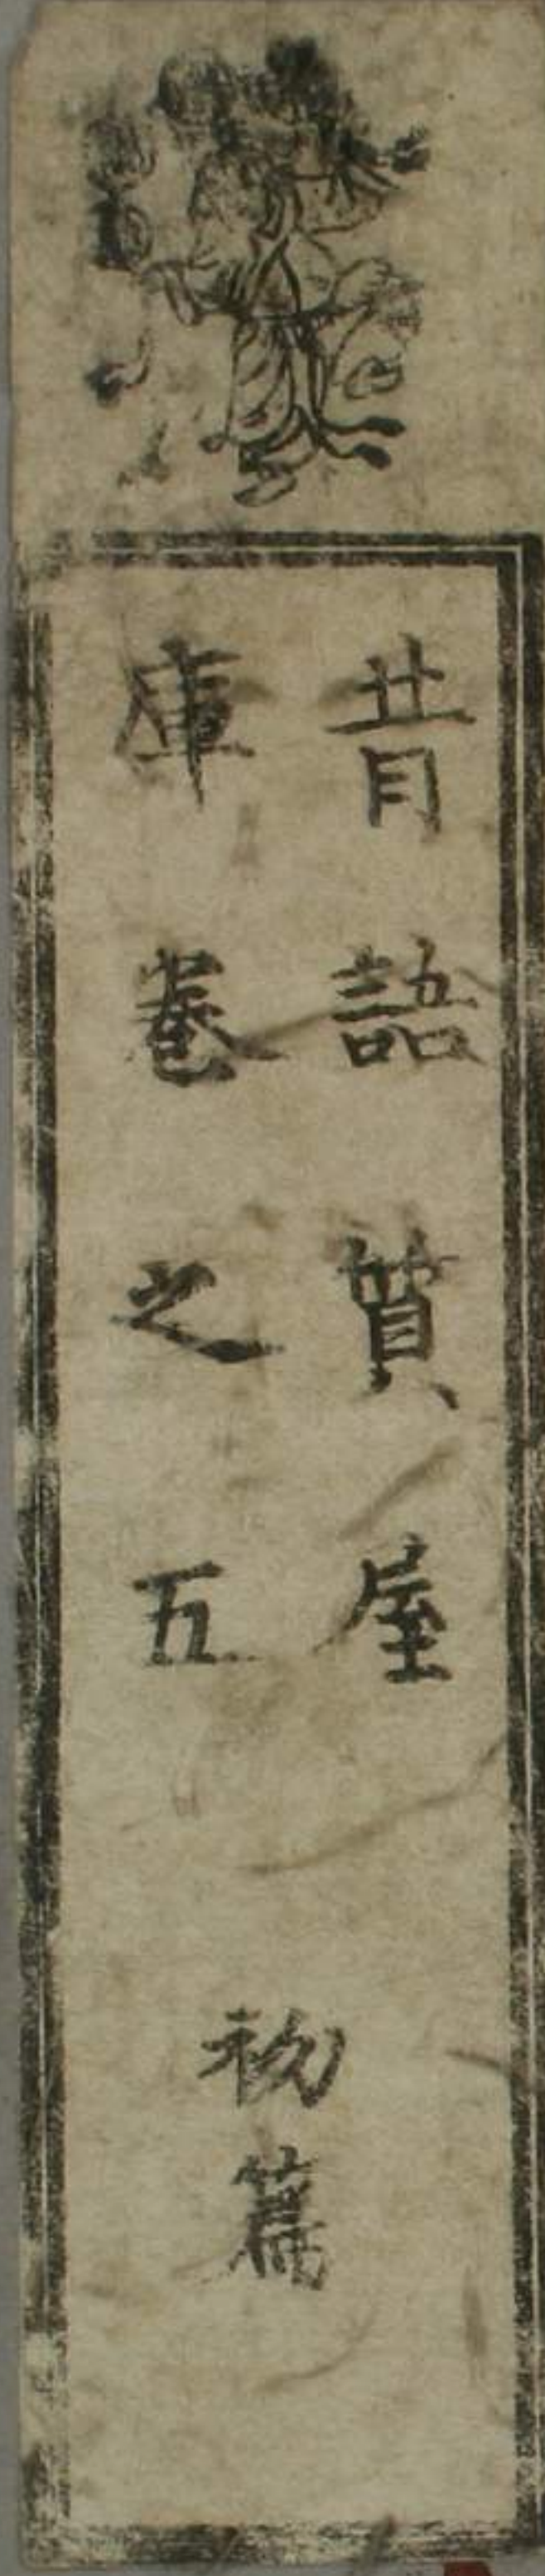 昔語質屋
庫卷之五
初篇